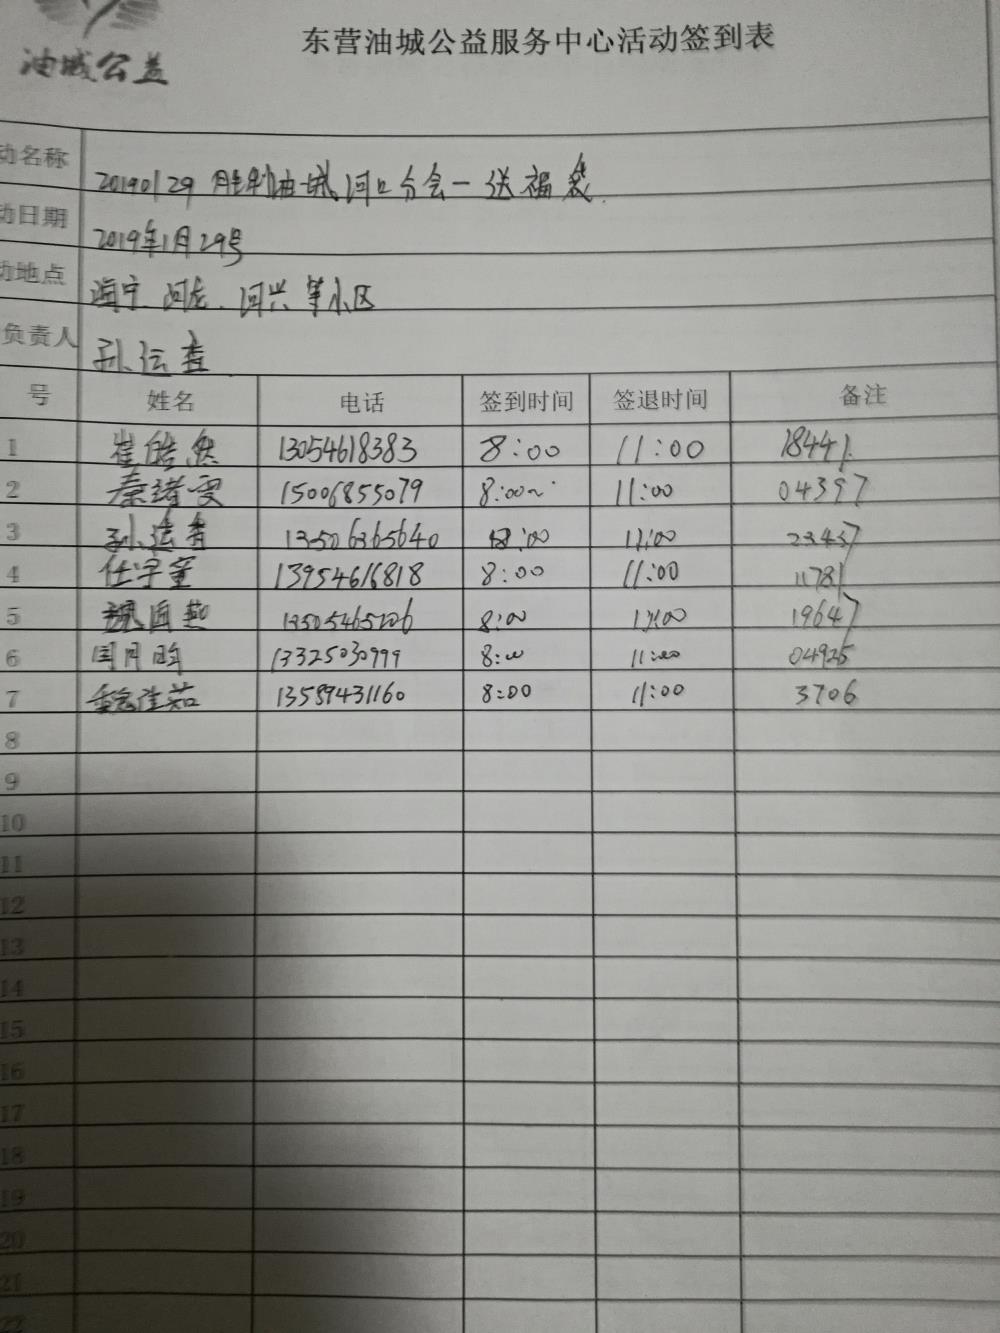 油城公益
东营油城公益服务中心活动签到表
动名称 20190129 胜利油城河口分会一送福袋
动日期 2019年1月29号
动地点 海宁、河龙、河兴等小区
负责人 孙运香
号 姓名 电话 签到时间 签退时间 备注
1 崔皓然 13054618383 8:00 11:00 18441
2 秦绪雯 15006855079 8:00 11:00 04397
3 孙运香 13506365640 8:00 11:00 23437
4 任宇童 13954616818 8:00 11:00 11781
5 魏海燕 13505465206 8:00 11:00 19647
6 13325030999 8:00 11:00 04925
7 魏佳茹 13589431160 8:00 11:00 3706
8
9
10
11
12
13
14
15
16
17
18
19
20
21
22